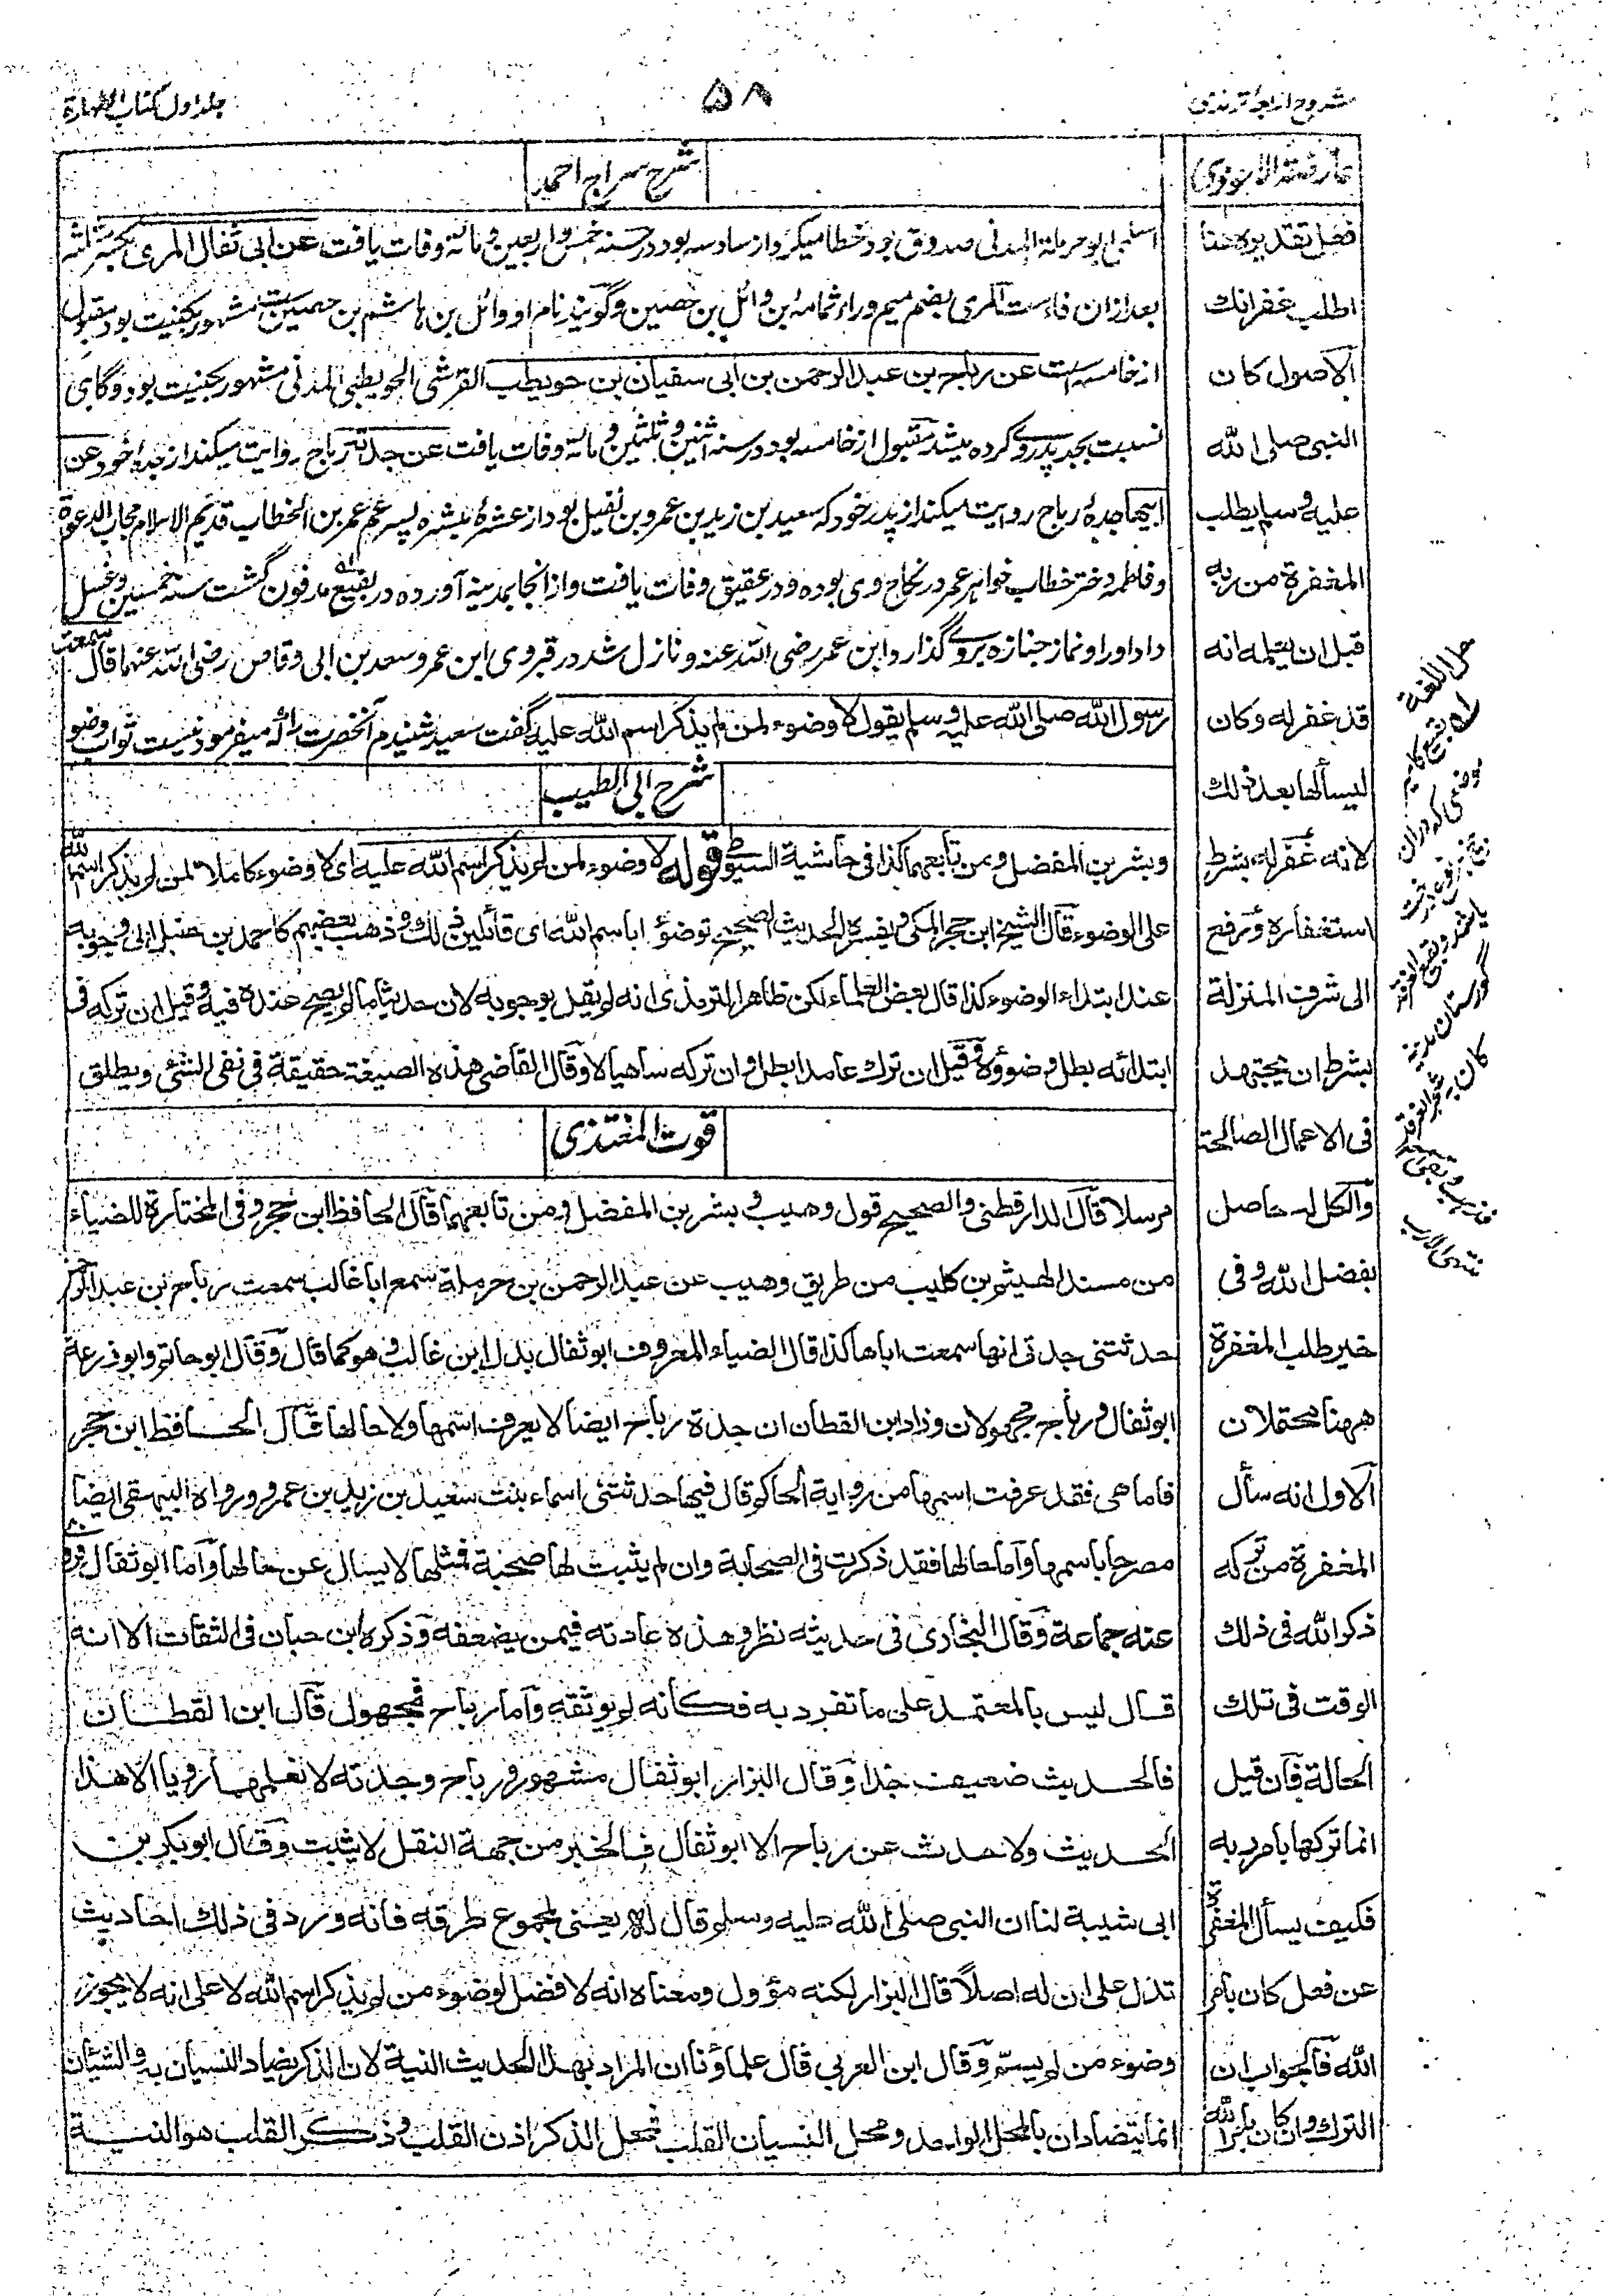 شروح اربعهٔ ترمذی
۵۸
جلد اول کتاب الطهارة
عارضة الاحوذی
فعل تقدیره هنا
اطلب غفرانك
الاصول کان
النبی صلی الله
علیه وسلم یطلب
المغفرة من ربه
قبل ان یعلمه انه
قد غفر له وکان
لیسألها بعد ذلك
لانه غفر له بشرط
استغفاره ورفع
الی شرف المنزلة
بشرط ان یجتهد
فی الاعمال الصالحة
والکل له حاصل
بفضل الله وفی
خیر طلب المغفرة
ههنا محتملان
الاول انه سأل
المغفرة من ترکه
ذکر الله فی ذلك
الوقت فی تلك
الحالة فان قیل
انما ترکها بامر ربه
فکیف یسأل المغفرة
عن فعل کان بامر
الله فالجواب ان
الترك وان کان بامر الله
شرح سراج احمد
اسلمی ابو حرملة المدنی صدوق بود خطا میکرد از سادسه بود در سنه خمس واربعین ومائة وفات یافت عن ابی ثفال المری بکسر مثلثه
بعد ازان فاءست المری بضم میم وراء ثمامه بن وائل بن حصین وگویند نام او وائل بن هاشم بن حصین ست مشهور بکنیت بود مقبول
از خامسه است عن رباح بن عبد الرحمن بن ابی سفیان بن حویطب القرشی الحویطبی المدنی مشهور بکنیت بود وگاهی
نسبت بجد پدر وے کرده میشد مقبول از خامسه بود در سنه اثنین وثلثین ومائة وفات یافت عن جدته رباح روایت میکند از جدهٔ خود عن
ابیها جدهٔ رباح روایت میکند از پدر خود که سعید بن زید بن عمرو بن نفیل بود از عشرهٔ مبشره پسر عم عمر بن الخطاب قدیم الاسلام مجاب الدعوة
وفاطمه دختر خطاب خواهر عمر در نکاح وی بوده ودر عقیق وفات یافت واز انجا بمدینه آورده در بقیع مدفون گشت سنه خمسین وغسل
داد او را ونماز جنازه بروے گذارد ابن عمر رضی الله عنه ونازل شد در قبر وی ابن عمر وسعد بن ابی وقاص رضی الله عنهما قال سمعت
رسول الله صلی الله علیه وسلم یقول لا وضوء لمن لم یذکر اسم الله علیه گفت سعید شنیدم آنحضرت را که میفرمود نیست ثواب وضو
شرح ابی الطیب
وبشر بن المفضل ومن تابعهما کذا فی حاشیة السیوطی قوله لا وضوء لمن لم یذکر اسم الله علیه ای لا وضوء کاملا لمن لم یذکر اسم الله
علی الوضوء قال الشیخ ابن حجر المکی ویفسره الحدیث الصحیح توضؤا باسم الله ای قائلین ذلك وذهب بعضهم کاحمد بن حنبل الی وجوبه
عند ابتداء الوضوء کذا قال بعض العلماء لکن ظاهر الترمذی انه لم یقل بوجوبه لان حدیثا ما لم یصح عنده فیه وقیل ان ترکه فی
ابتدائه بطل وضوؤه وقیل ان ترك عامدا بطل وان ترکه ساهیا لا وقال القاضی هذه الصیغة حقیقة فی نفی الشئ ویطلق
قوت المغتذی
مرسلا قال الدارقطنی والصحیح قول وهیب وبشر بن المفضل ومن تابعهما قال الحافظ ابن حجر وفی المختارة للضیاء
من مسند الهیثم بن کلیب من طریق وهیب عن عبد الرحمن بن حرملة سمع ابا غالب سمعت رباح بن عبد الرحمن
حدثتنی جدتی انها سمعت اباها کذا قال الضیاء المعروف ابو ثفال بدل ابن غالب وهو کما قال وقال ابو حاتم وابو زرعة
ابو ثفال ورباح مجهولان وزاد ابن القطان ان جدة رباح ایضا لا یعرف اسمها ولا حالها قال الحافظ ابن حجر
فاما هی فقد عرفت اسمها من روایة الحاکم وقال فیها حدثتنی اسماء بنت سعید بن زید بن عمرو ورواه البیهقی ایضا
مصرحا باسمها واما حالها فقد ذکرت فی الصحابة وان لم یثبت لها صحبة فمثلها لا یسال عن حالها واما ابو ثفال فروی
عنه جماعة وقال البخاری فی حدیثه نظر وهذه عادته فیمن یضعفه وذکره ابن حبان فی الثقات الا انه
قال لیس بالمعتمد علی ما تفرد به فکأنه لم یوثقه واما رباح فمجهول قال ابن القطان
فالحدیث ضعیف جدا وقال البزار ابو ثفال مشهور ورباح وجدته لا نعلمهما رویا الا هذا
الحدیث ولا حدث عن رباح الا ابو ثفال فالخبر من جهة النقل لا یثبت وقال ابو بکر بن
ابی شیبة لنا ان النبی صلی الله علیه وسلم قال له یعنی لمجموع طرقه فانه ورد فی ذلك احادیث
تدل علی ان له اصلاً قال البزار لکنه مؤول ومعناه انه لا فضل لوضوء من لم یذکر اسم الله لا علی انه لا یجوز
وضوء من لم یسم وقال ابن العربی قال علماؤنا ان المراد بهذا الحدیث النیة لان الذکر یضاد النسیان به والشیئان
انما یتضادان بالمحل الواحد ومحل النسیان القلب فمحل الذکر اذن القلب وذکر القلب هو النیة
حل اللغة
موضعی که دران
باشد وبقیع الغرقد
گورستان مدینه
منتهی الارب